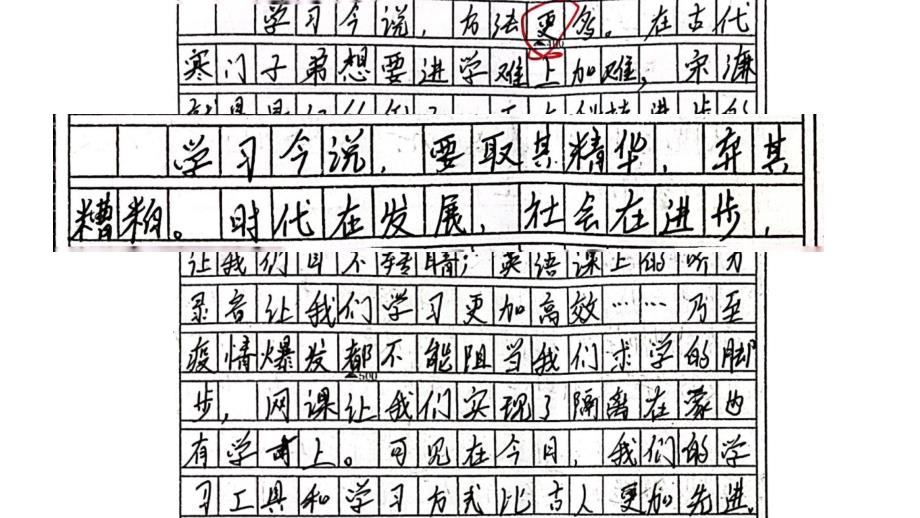 学习今说，方法更多。在古代
400
寒门子弟想要进学难上加难，宋濂
学习今说，要取其精华，弃其
糟粕。时代在发展，社会在进步，
让我们目不转睛；英语课上的听力
录音让我们学习更加高效……乃至
疫情爆发都不能阻当我们求学的脚
500
步，网课让我们实现了隔离在家也
有学上。可见在今日，我们的学
习工具和学习方式比古人更加先进。